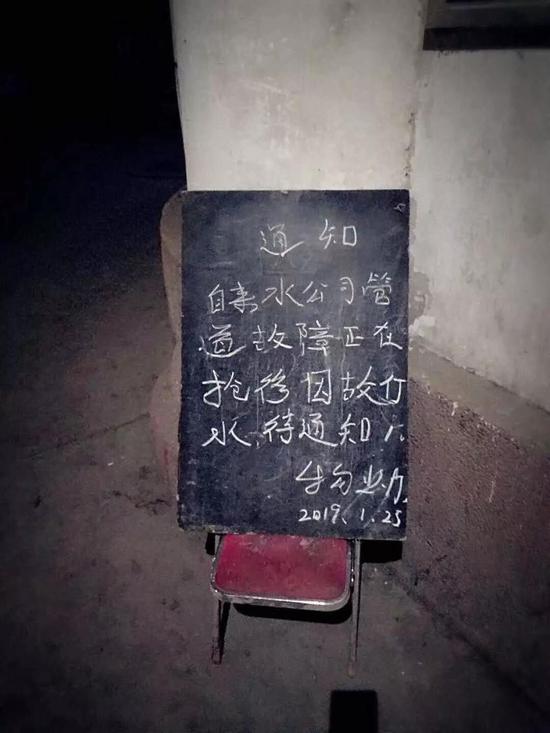 通知
自来水公司管
道故障正在
抢修因故仃
水,待通知
物业办
2019.1.25